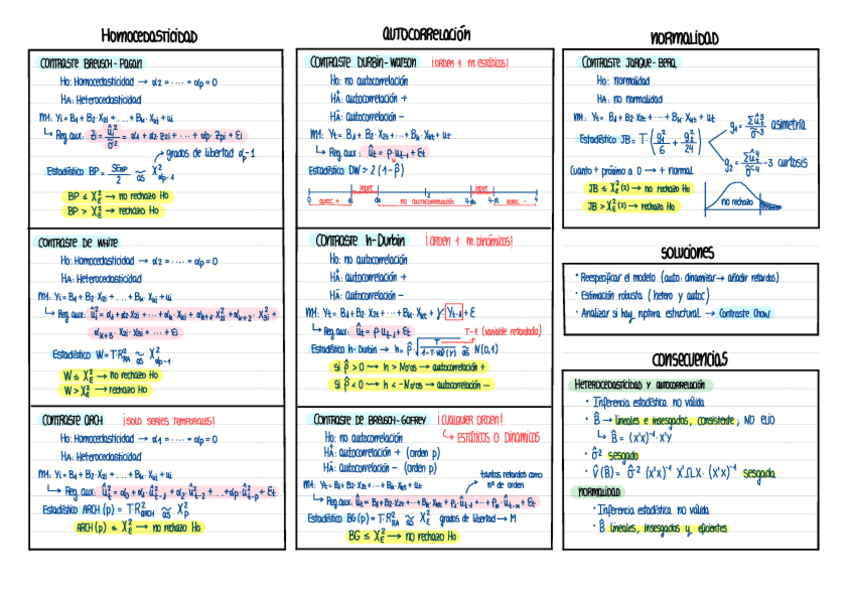 Homocedasticidad
CONTRASTE BREUSCH-PAGAN
Ho: Homocedasticidad → α2 = ···· = αp = 0
HA: Heterocedasticidad
M1: Yi = B1 + B2· X2i + ... + Bk· Xki + ui
↳ Reg aux: Zi = ûi²/σ̂² = α1 + α2· Z2i + ··· + αp· Zpi + Ei
grados de libertad αp-1
Estadístico BP = SEBP/2 ~as X²αp-1
BP ≤ X²ε → no rechazo Ho
BP > X²ε → rechazo Ho
CONTRASTE DE WHITE
Ho: Homocedasticidad → α2 = ···· = αp = 0
HA: Heterocedasticidad
M1: Yi = B1 + B2· X2i + ... + Bk· Xki + ui
Estadístico W = T·R²RA ~as X²αp-1
W ≤ X²ε → no rechazo Ho
W > X²ε → rechazo Ho
CONTRASTE ARCH ¡SOLO SERIES TEMPORALES!
Ho: Homocedasticidad → α1 = ···· = αp = 0
HA: Heterocedasticidad
M1: Yi = B1 + B2· X2i + ... + Bk· Xki + ui
Estadístico ARCH (p) = T·R²ARCH ~as X²p
ARCH (p) ≤ X²ε → no rechazo Ho
AUTOCORRELACIÓN
CONTRASTE DURBIN-WATSON ¡ORDEN 1 M.ESTÁTICOS!
Ho: no autocorrelación
HA+: autocorrelación +
HA-: autocorrelación -
M1: Yt = B1 + B2· X2t + ··· + Bk· Xkt + ut
↳ Reg aux: ût = ρ·ut-1 + Et
Estadístico DW ≃ 2 (1-ρ̂)
AUTOC. + NO AUTOCORRELACIÓN AUTOC. -
CONTRASTE h-Durbin ¡ORDEN 1 M.DINÁMICOS!
Ho: no autocorrelación
HA+: autocorrelación +
HA-: autocorrelación -
M1: Yt = B1 + B2· X2t + ··· + Bk· Xkt + γ Yt-1 + E
↳ Reg aux: ût = ρ·ut-1 + Et T-1 (variable retardada)
Estadístico h-Durbin → h = ρ̂· √(T/(1-T·VAR(γ))) ~as N(0,1)
Si ρ̂ > 0 → h > N0'05 → autocorrelación +
Si ρ̂ < 0 → h < -N0'05 → autocorrelación -
CONTRASTE DE BREUSCH-GOFREY ¡CUALQUIER ORDEN!
↳ ESTÁTICOS O DINÁMICOS
Ho: no autocorrelación
HA+: autocorrelación + (orden p)
HA-: autocorrelación - (orden p)
tantos retardos como nº de orden
M1: Yt = B1 + B2· X2t + ··· + Bk· Xkt + ut
Estadístico BG (p) = T·R²RA ~as X²ε grados de libertad → M
BG ≤ X²ε → no rechazo Ho
NORMALIDAD
CONTRASTE JARQUE-BERA
Ho: normalidad
HA: no normalidad
M1: Yt = B1 + B2· X2t + ··· + Bk· Xkt + ut
g1 = Σût³/σ̂³ asimetría
Estadístico JB = T·(g1²/6 + g2²/24)
g2 = Σût⁴/σ̂⁴ -3 curtosis
Cuanto + próximo a 0 → + normal
JB ≤ X²ε (2) → no rechazo Ho
JB > X²ε (2) → rechazo Ho
no rechazo
SOLUCIONES
· Reespecificar el modelo (auto: dinamizar → añadir retardos)
· Estimación robusta (hetero y autoc)
· Analizar si hay ruptura estructural → Contraste Chow
CONSECUENCIAS
HETEROCEDASTICIDAD Y AUTOCORRELACIÓN
· Inferencia estadística no válida
· B̂ → lineales e insesgados, consistente; NO ELIO
↳ B̂ = (X'X)⁻¹·X'Y
· σ̂² sesgado
· V̂(B̂) = σ̂² (X'X)⁻¹ X'ΩX· (X'X)⁻¹ sesgada
NORMALIDAD
· Inferencia estadística no válida
· B̂ lineales, insesgados y eficientes